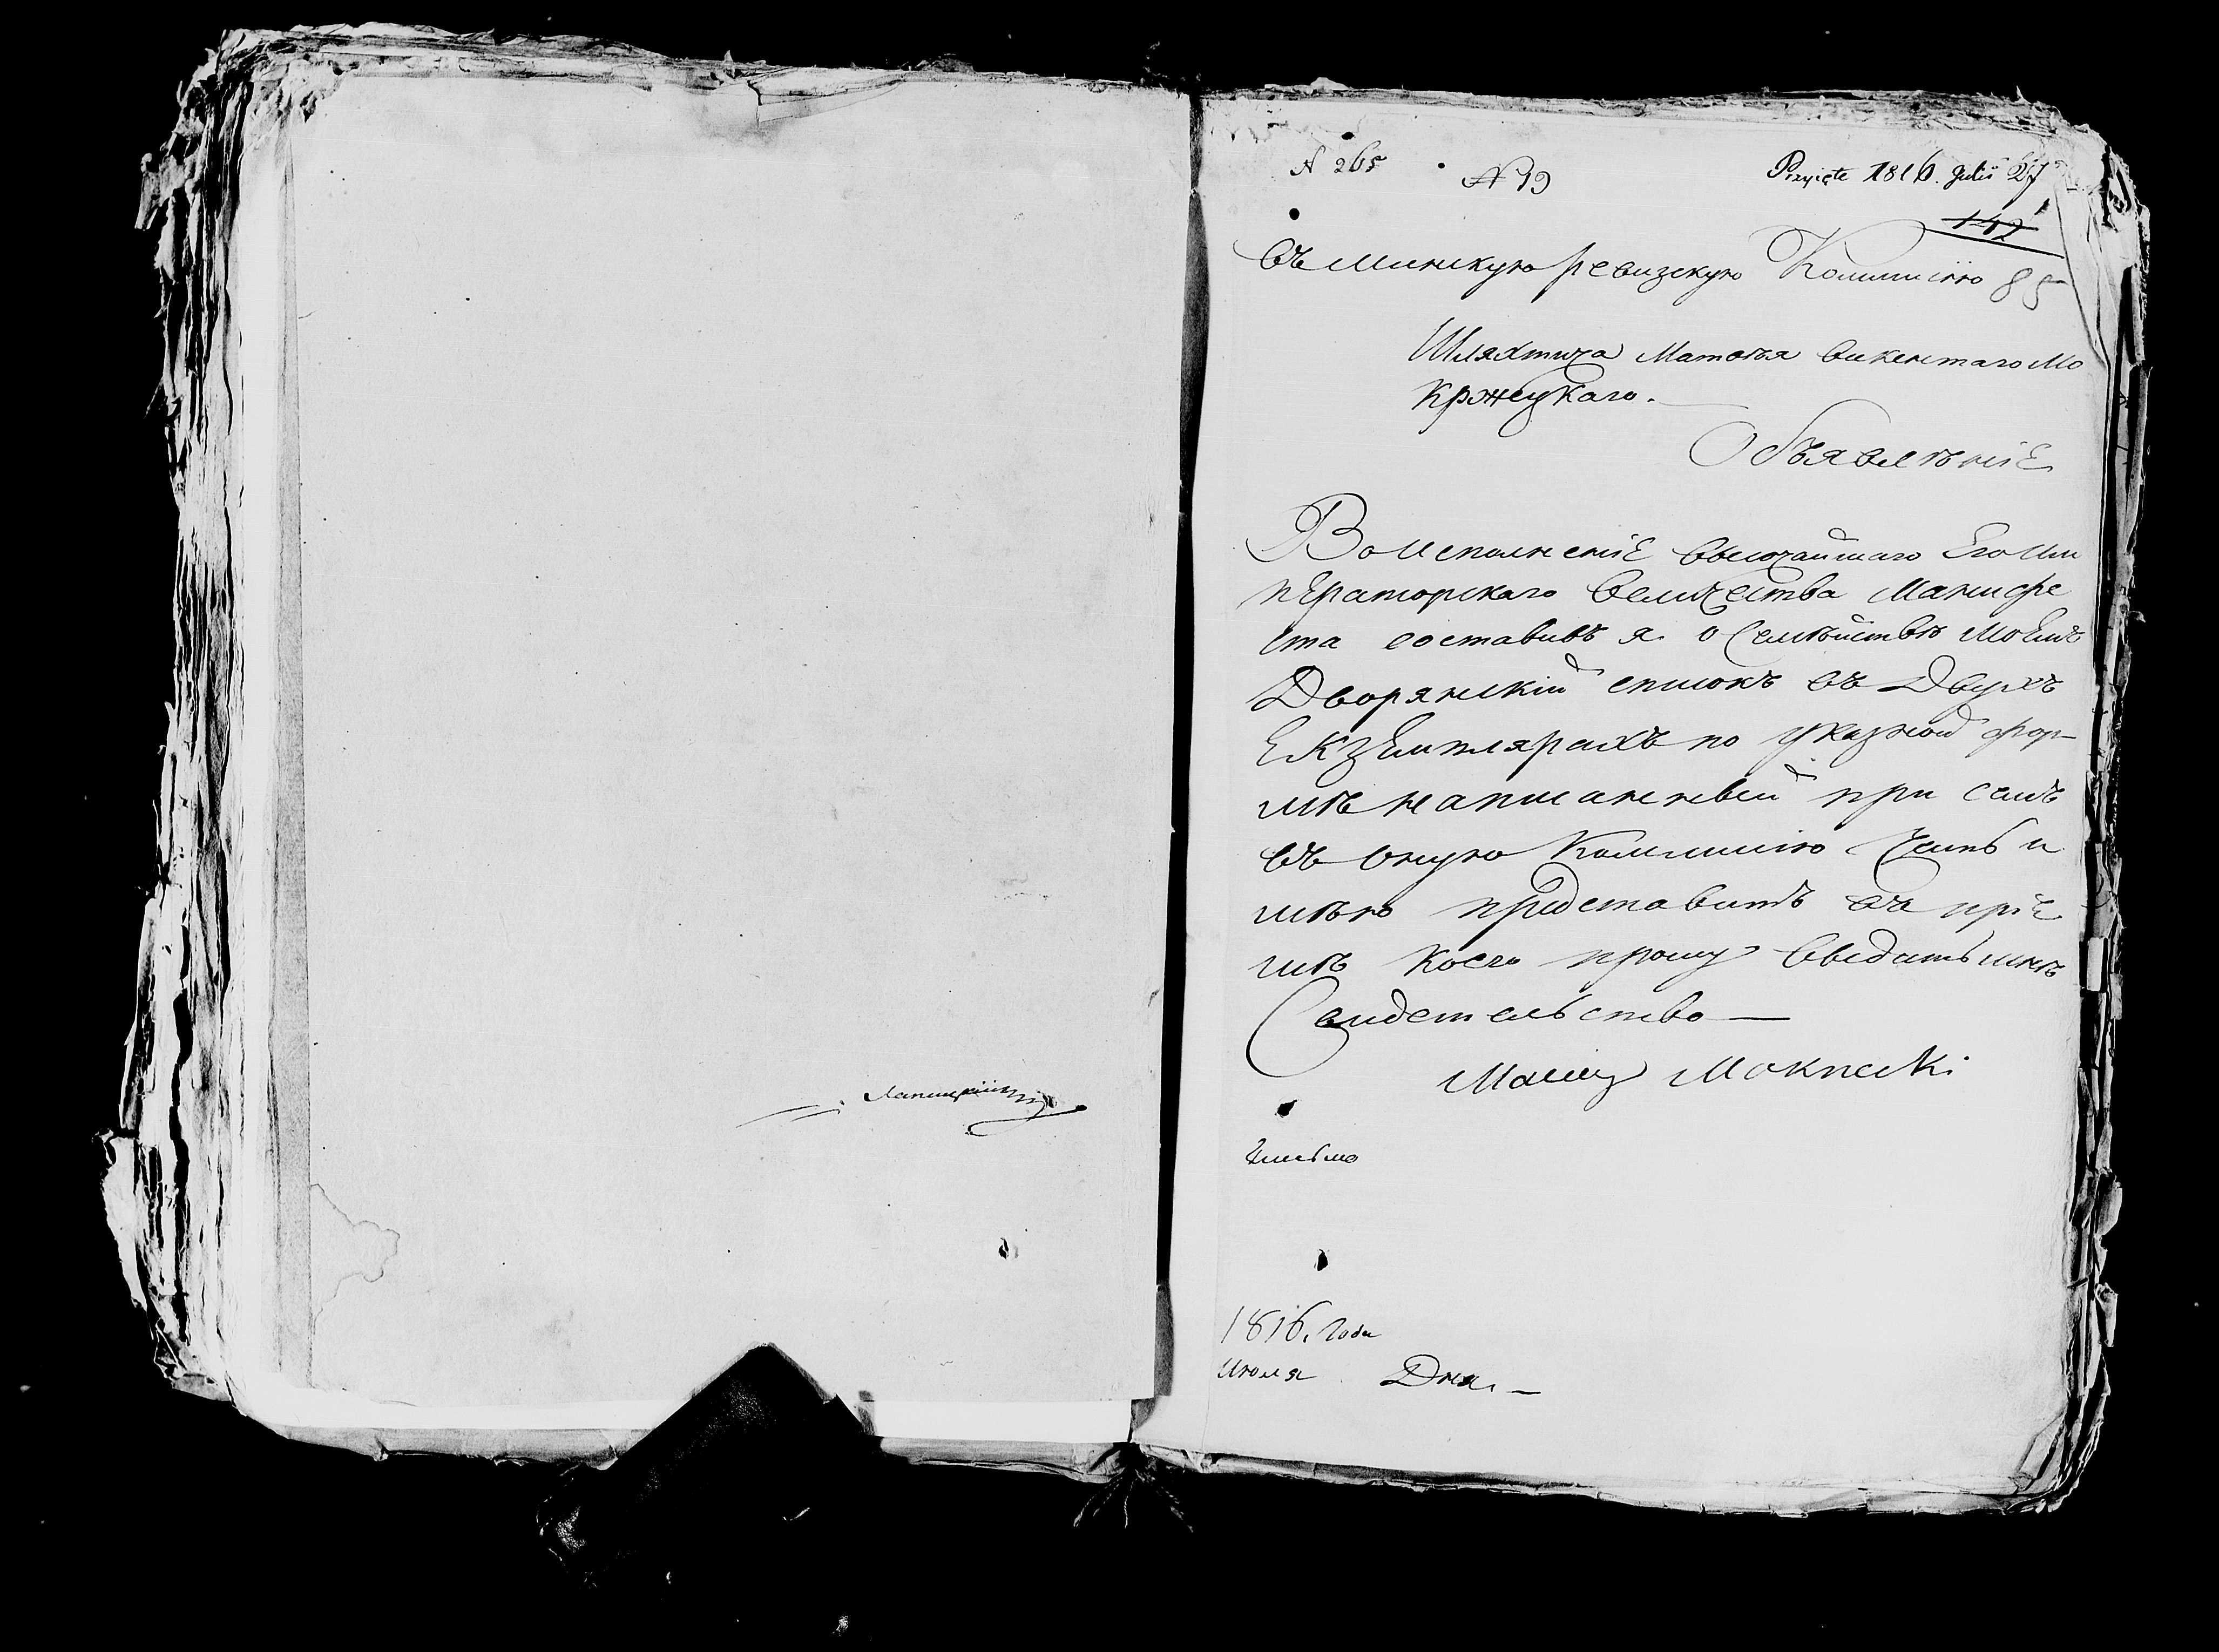 N 265
N 19
Przyięte 1816. Julii 27
142
въ Минскую ревизскую Коммисiю 85
Шляхтича Матвѣя викентаго Мо
кржецкаго.
Объявлѣнiе
Во исполненiе высочайшаго Его Им
ператорскаго величества Манифе
ста составивъ я о Семѣйствѣ моемъ
Дворянскiй списокъ въ Двухъ
Екземплярахъ по указной фор-
мѣ написанный при семъ
въ оную Коммисiю Честь и
мѣю представитъ въ прiе
мѣ коего прошу выдать мнѣ
Свидетельство —
Maciey Mokrzecki
1816. Года
Июля Дня. —